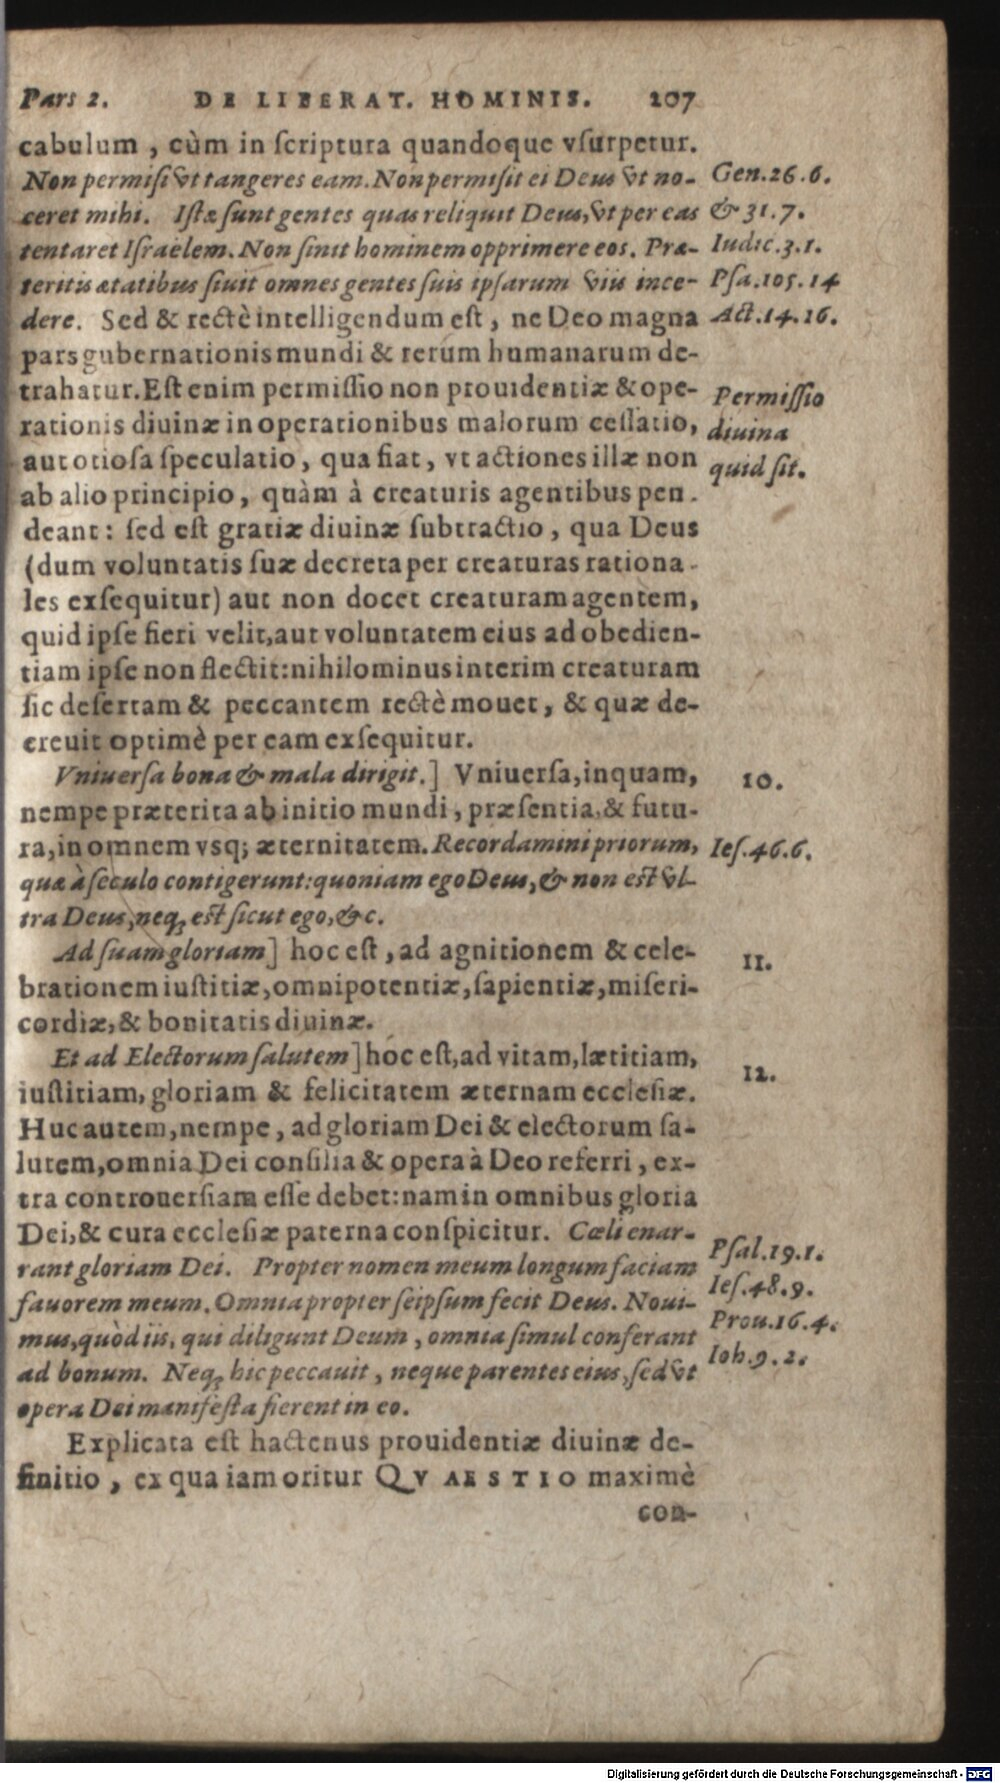 Pars 2. DE LIBERAT. HOMINIS. 207
cabulum, cùm in ſcriptura quandoque vſurpetur.
Non permiſi vt tangeres eam. Non permiſit ei Deus vt no-
ceret mihi. Iſtæ ſunt gentes quas reliquit Deus, vt per eas
tentaret Iſraëlem. Non ſinit hominem opprimere eos. Præ-
teritis ætatibus ſiuit omnes gentes ſuis ipſarum viis ince-
dere. Sed & rectè intelligendum eſt, ne Deo magna
pars gubernationis mundi & rerum humanarum de-
trahatur. Eſt enim permiſſio non prouidentiæ & ope-
rationis diuinæ in operationibus malorum ceſſatio,
aut otioſa ſpeculatio, qua fiat, vt actiones illæ non
ab alio principio, quàm à creaturis agentibus pen-
deant: ſed eſt gratiæ diuinæ ſubtractio, qua Deus
(dum voluntatis ſuæ decreta per creaturas rationa-
les exſequitur) aut non docet creaturam agentem,
quid ipſe fieri velit, aut voluntatem eius ad obedien-
tiam ipſe non flectit: nihilominus interim creaturam
ſic deſertam & peccantem rectè mouet, & quæ de-
creuit optimè per eam exſequitur.
Vniuerſa bona & mala dirigit.] Vniuerſa, inquam,
nempe præterita ab initio mundi, præſentia, & futu-
ra, in omnem vsq; æternitatem. Recordamini priorum,
quæ à ſeculo contigerunt: quoniam ego Deus, & non eſt vl-
tra Deus, neq; eſt ſicut ego, &c.
Ad ſuam gloriam] hoc eſt, ad agnitionem & cele-
brationem iuſtitiæ, omnipotentiæ, ſapientiæ, miſeri-
cordiæ, & bonitatis diuinæ.
Et ad Electorum ſalutem] hoc eſt, ad vitam, lætitiam,
iuſtitiam, gloriam & felicitatem æternam eccleſiæ.
Huc autem, nempe, ad gloriam Dei & electorum ſa-
lutem, omnia Dei conſilia & opera à Deo referri, ex-
tra controuerſiam eſſe debet: nam in omnibus gloria
Dei, & cura eccleſiæ paterna conſpicitur. Cœli enar-
rant gloriam Dei. Propter nomen meum longum faciam
fauorem meum. Omnia propter ſeipſum fecit Deus. Noui-
mus, quòd iis, qui diligunt Deum, omnia ſimul conferant
ad bonum. Neq; hic peccauit, neque parentes eius, ſed vt
opera Dei manifeſta fierent in eo.
Explicata eſt hactenus prouidentiæ diuinæ de-
finitio, ex qua iam oritur QVAESTIO maximè
con-
Gen. 26. 6.
& 31. 7.
Iudic. 3. 1.
Pſa. 105. 14
Act. 14. 16.
Permiſſio
diuina
quid ſit.
10.
Ieſ. 46. 6.
11.
12.
Pſal. 19. 1.
Ieſ. 48. 9.
Prou. 16. 4.
Ioh. 9. 2.
Digitalisierung gefördert durch die Deutsche Forschungsgemeinschaft - DFG